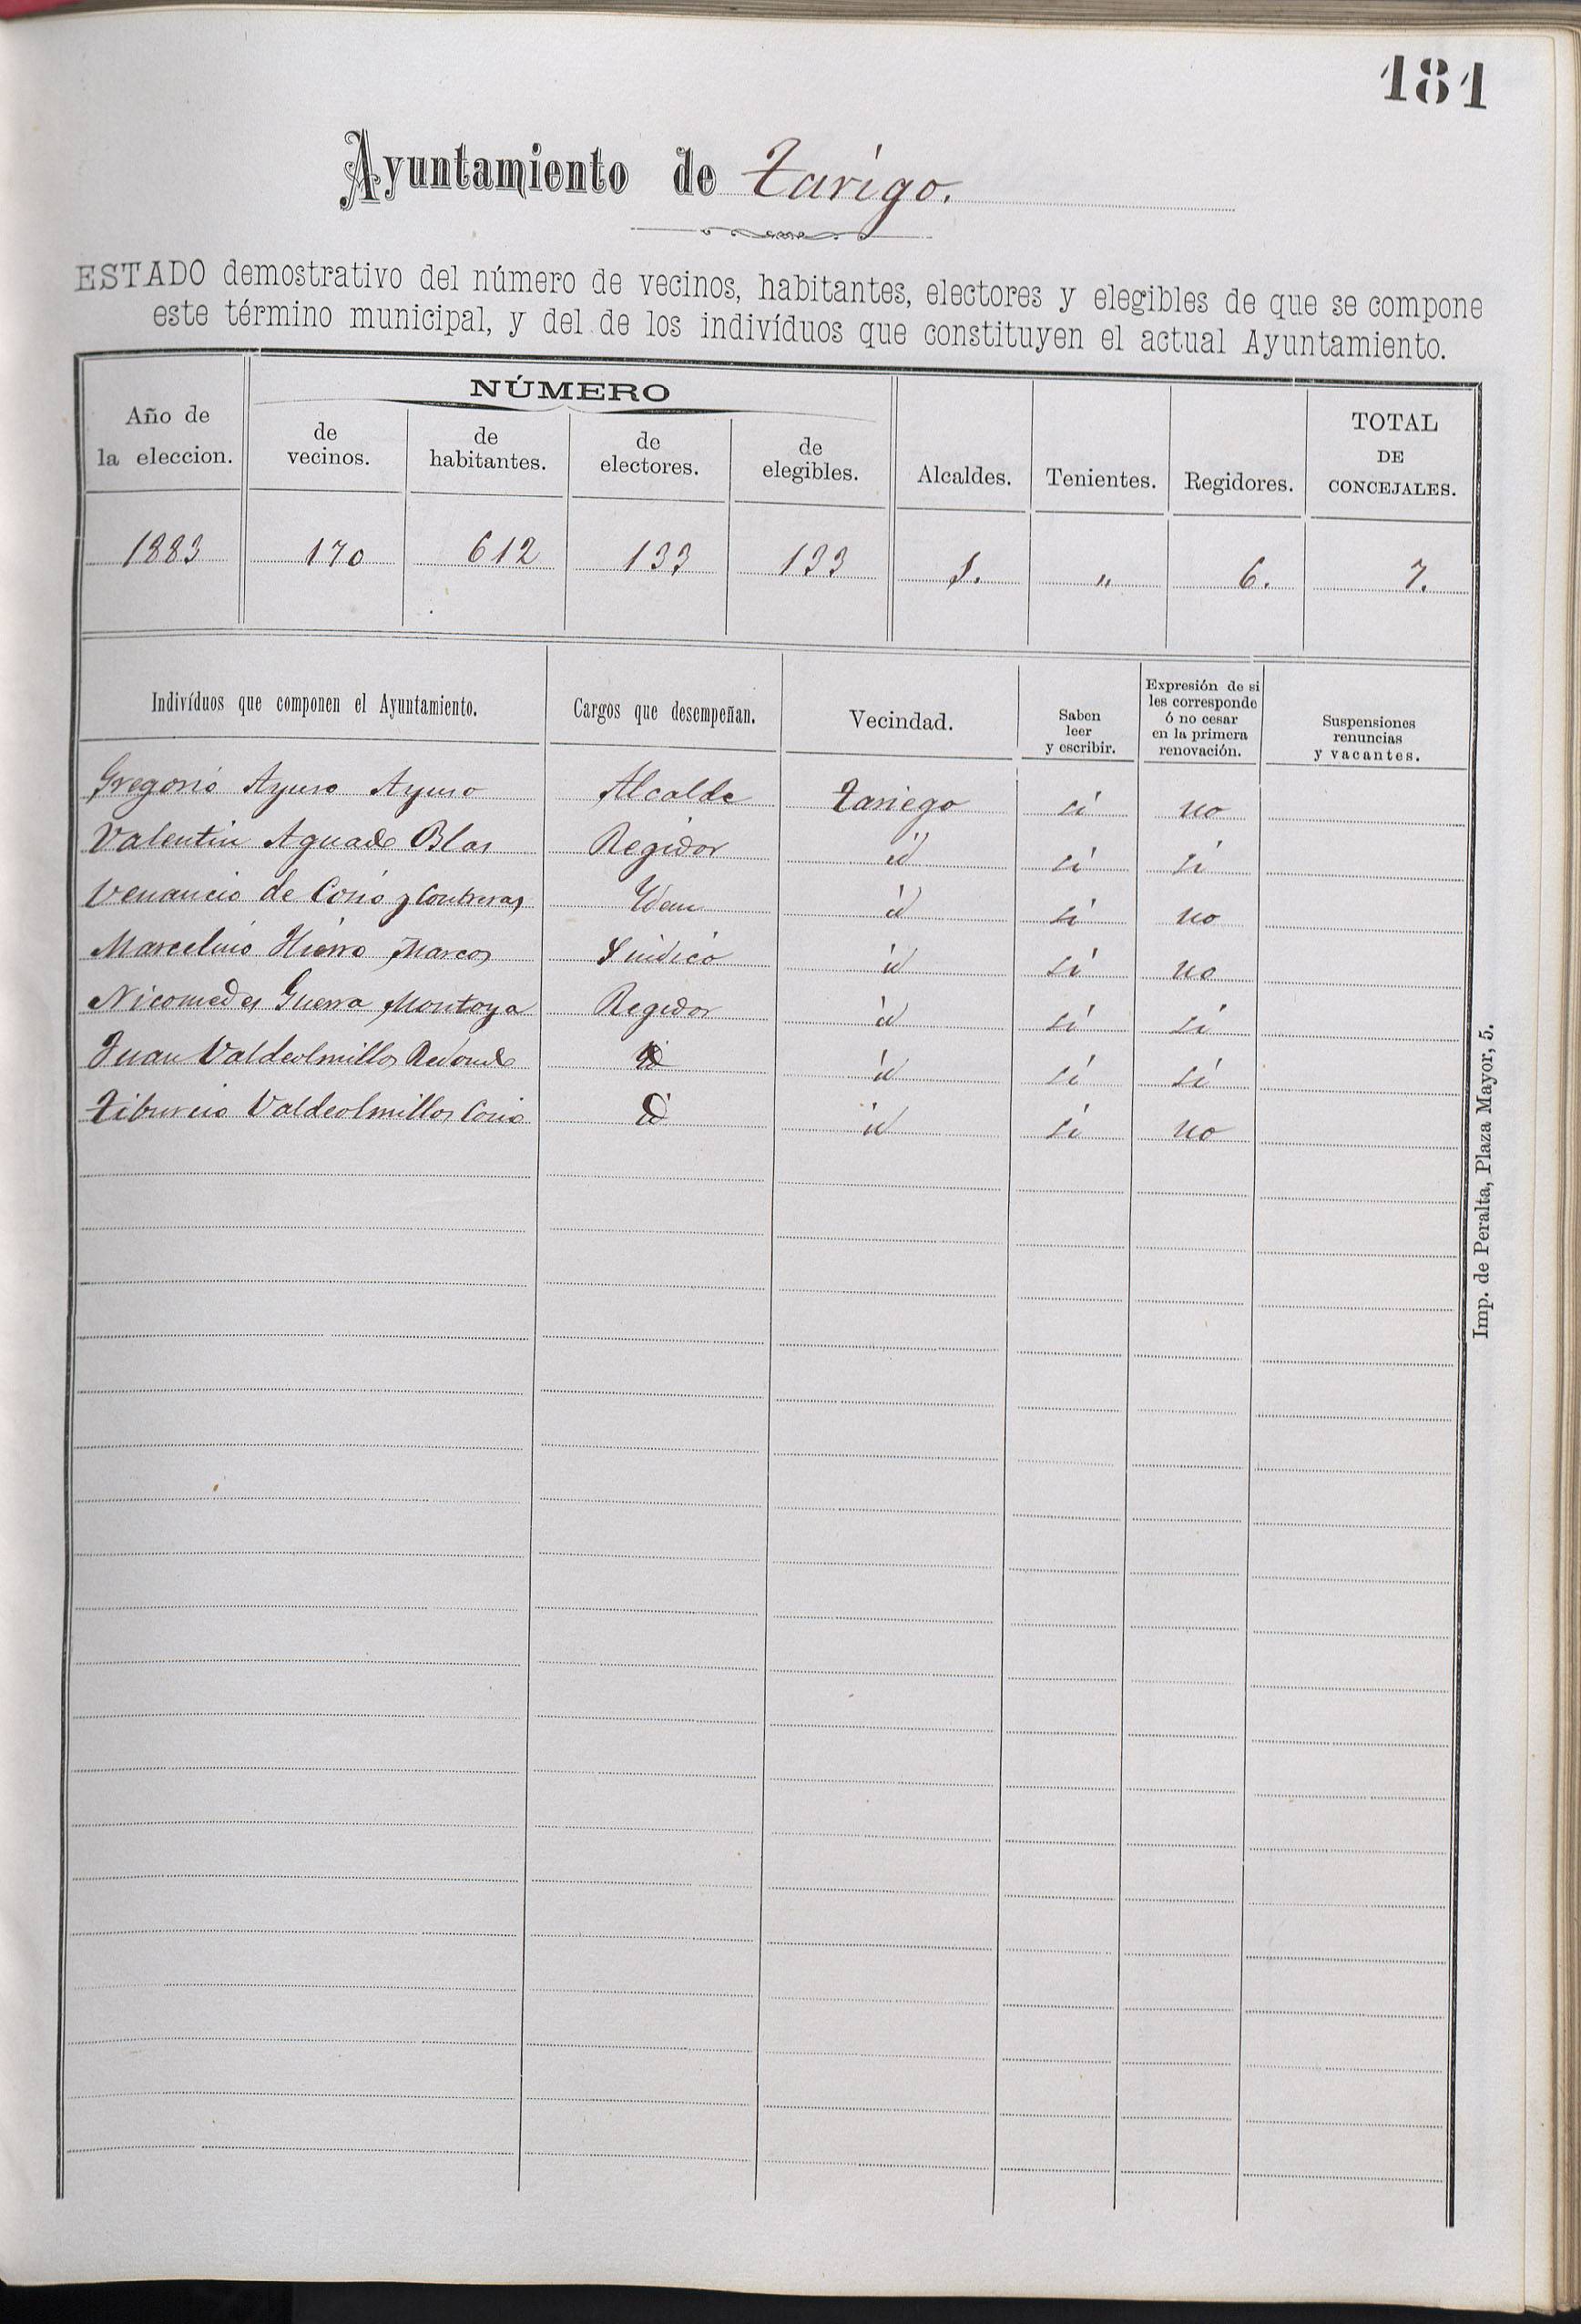 181
Ayuntamiento de Tarigo.
ESTADO demostrativo del número de vecinos, habitantes, electores y elegibles de que se compone
este término municipal, y del de los indivíduos que constituyen el actual Ayuntamiento.
Año de la eleccion. NÚMERO de vecinos. de habitantes. de electores. de elegibles. Alcaldes. Tenientes. Regidores. TOTAL DE CONCEJALES.
1883 170 612 133 133 1. " 6. 7.
Indivíduos que componen el Ayuntamiento. Cargos que desempeñan. Vecindad. Saben leer y escribir. Expresión de si les corresponde ó no cesar en la primera renovación. Suspensiones renuncias y vacantes.
Gregorio Ayuso Ayuso Alcalde Tariego si no
Valentin Aguado Blas Regidor id si si
Venancio de Coria y Contreras Ydem id si no
Marcelino Hierro Marcos Sindico id si no
Nicomedes Guerra Montoya Regidor id si si
Juan Valdeolmillos Redondo id id si si
Tiburcio Valdeolmillos Coria id id si no
Imp. de Peralta, Plaza Mayor, 5.